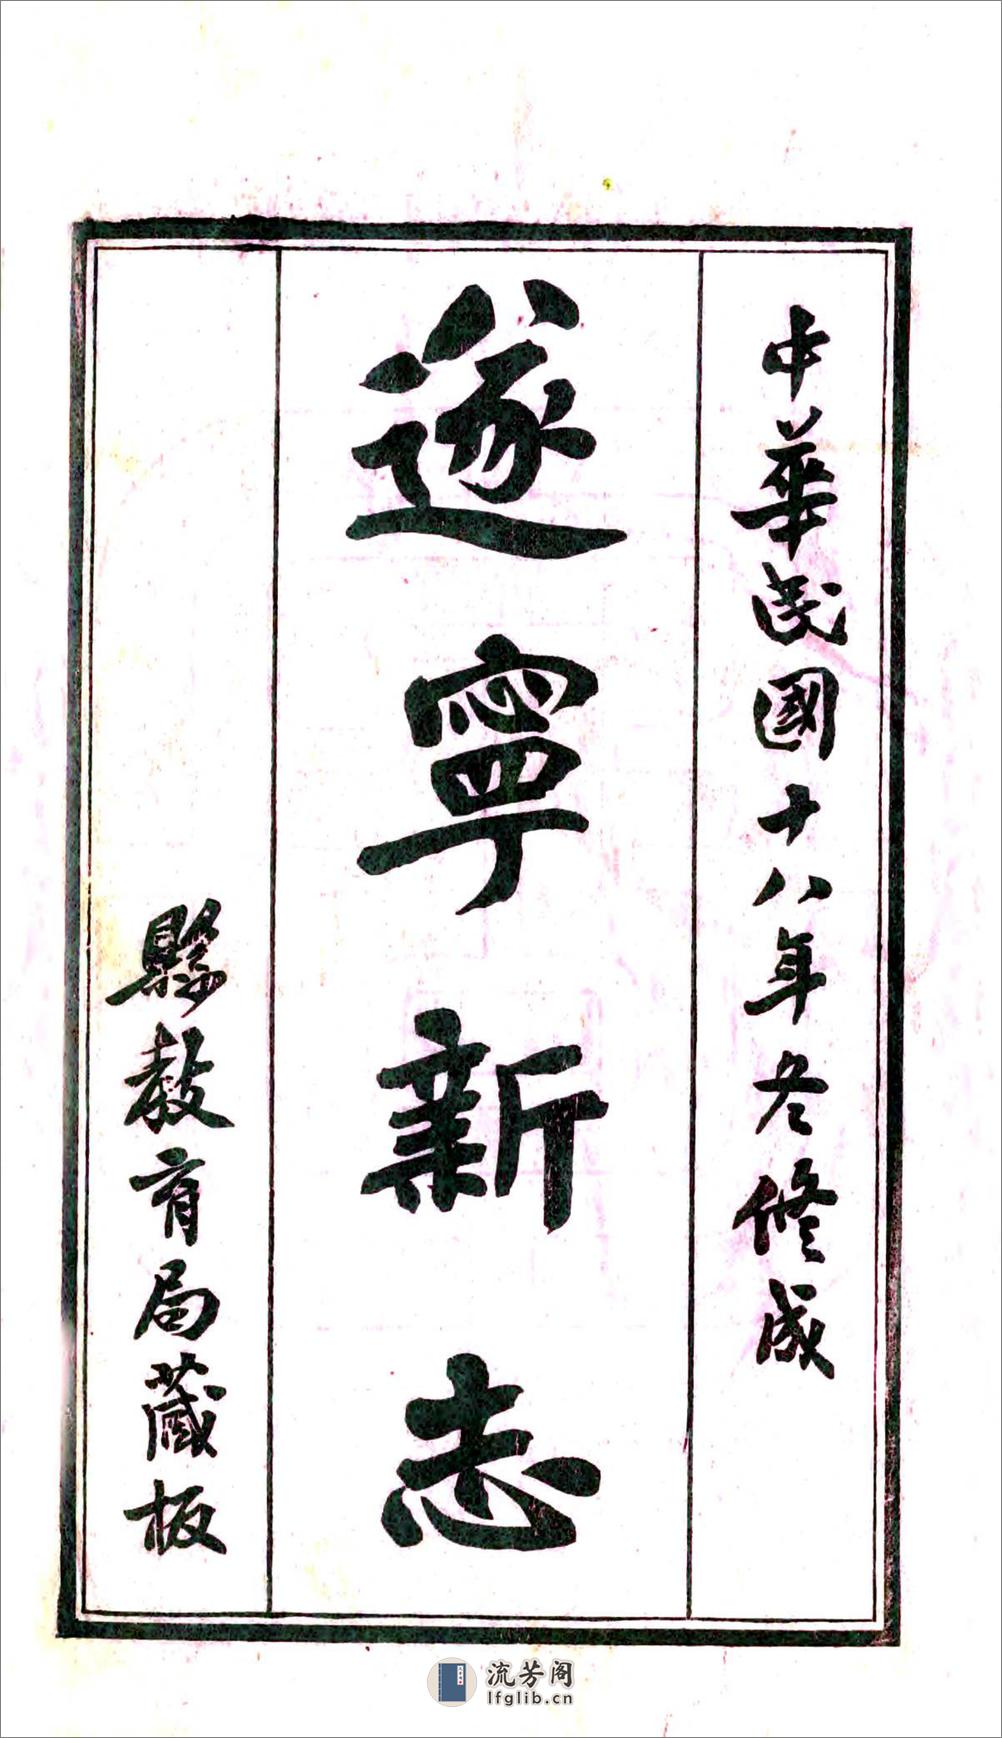 中華民國十八年冬修成
遂寧新志
縣教育局藏板
流芳阁
lfglib.cn